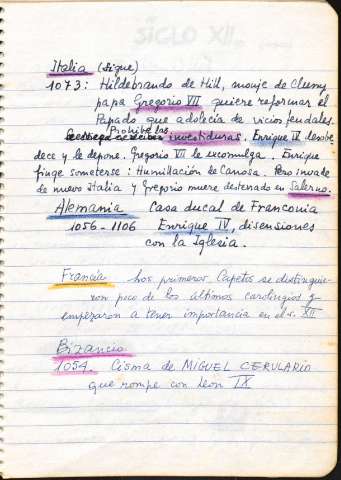 Italia (sigue)
1073: Hildebrando de Hill, monje de Cluny,
papa Gregorio VII quiere reformar el
Papado que adolecia de vicios feudales.
Prohibe las investiduras. Enrique IV desobe
dece y le depone. Gregorio VII le excomulga. Enrique
finge someterse: Humillación de Canosa. Pero invade
de nuevo Italia y Gregorio muere desterrado en Salerno.
Alemania Casa ducal de Franconia
1056-1106 Enrique IV, disensiones
con la Iglesia.
Francia Los primeros Capetos se distinguie-
ron poco de los últimos carolingios y
empezaron a tener importancia en el s. XII
Bizancio
1054. Cisma de MIGUEL CERULARIO
que rompe con León IX